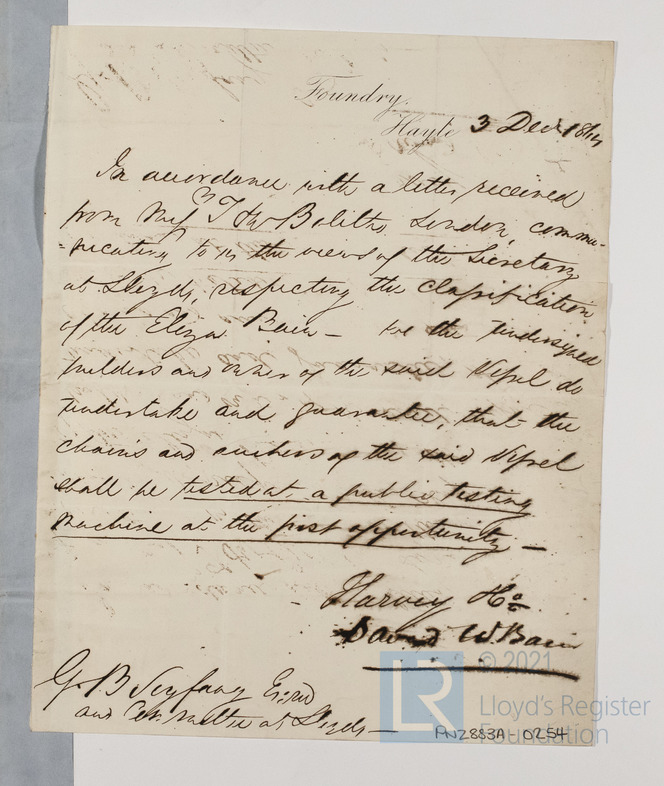 Foundry,
Hayle 3 Decr 1864
In accordance with a letter received
from Messrs T & W Bolitho London, commu-
-nicating to us the views of the Secretary
at Lloyds, respecting the classification
of the Eliza Bain — we the undersigned
builders and owner of the said Vessel do
undertake and guarantee, that the
chains and anchors of the said Vessel
shall be tested at a public testing
machine at the first opportunity —
Harvey & Co
David W. Bain
G B Seyfang Esqre
and Committee at Lloyds —
LR © 2021
Lloyd's Register
Foundation
PN2883A-0254